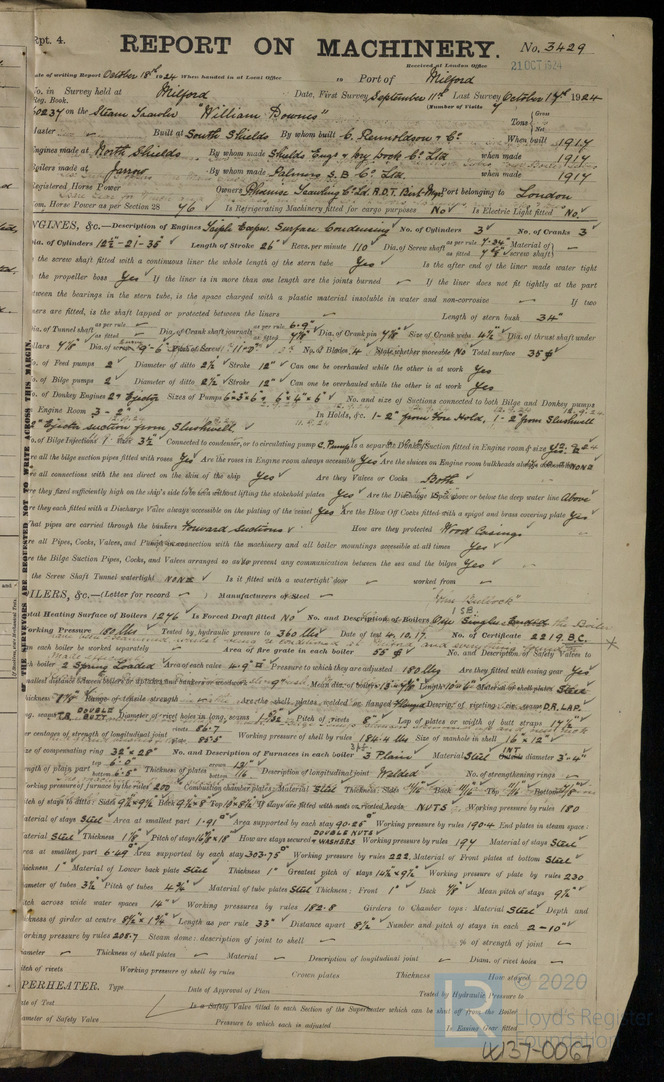 Rpt. 4.
REPORT ON MACHINERY. No. 3429
Received at London Office
21 OCT 1924
Date of writing Report October 18th 1924 When handed in at Local Office 19 Port of Milford
No. in Survey held at Milford Date, First Survey September 11th Last Survey October 17th 1924
Reg. Book. (Number of Visits 7
60237 on the Steam Trawler "William Downes" Tons Gross Net
Master Built at South Shields By whom built C. Rennoldson & Co. When built 1917
Engines made at North Shields By whom made Shields Engg & Dry Dock Co. Ltd when made 1917
Boilers made at Jarrow By whom made Palmers S.B. Co. Ltd. when made 1917
Registered Horse Power Owners Port belonging to London
Nom. Horse Power as per Section 28 76 Is Refrigerating Machinery fitted for cargo purposes No Is Electric Light fitted No.
ENGINES, &c.—Description of Engines Triple Expn. Surface Condensing No. of Cylinders 3 No. of Cranks 3
Dia. of Cylinders 12½-21-35 Length of Stroke 26" Revs. per minute 110 Dia. of Screw shaft as per rule 7.24" as fitted 7⅞" Material of screw shaft
the screw shaft fitted with a continuous liner the whole length of the stern tube Yes Is the after end of the liner made water tight
the propeller boss Yes If the liner is in more than one length are the joints burned If the liner does not fit tightly at the part
between the bearings in the stern tube, is the space charged with a plastic material insoluble in water and non-corrosive If two
liners are fitted, is the shaft lapped or protected between the liners Length of stern bush 34"
Dia. of Tunnel shaft as per rule as fitted Dia. of Crank shaft journals as per rule 6.9" as fitted 7⅛" Dia. of Crank pin 7⅛" Size of Crank webs 4½" Dia. of thrust shaft under
collars 7⅛" Dia. of screw 9-6 Pitch of Screw 11-0" No. of Blades 4 State whether moveable No Total surface 35
No. of Feed pumps 2 Diameter of ditto 2½" Stroke 12" Can one be overhauled while the other is at work Yes
No. of Bilge pumps 2 Diameter of ditto 2½" Stroke 12" Can one be overhauled while the other is at work Yes
No. of Donkey Engines 2 & Ejector Sizes of Pumps 6"×3"×6" & 6"×4"×6" No. and size of Suctions connected to both Bilge and Donkey pumps
Engine Room 3 - 2" In Holds, &c. 1-2" from For Hold, 1-2" from Slushwell
2" Ejector suction from Slushwell
No. of Bilge Injections 1 size 3½ Connected to condenser, or to circulating pump C. Pump Is a separate Donkey Suction fitted in Engine room & size Yes. 2"
are all the bilge suction pipes fitted with roses Yes Are the roses in Engine room always accessible Yes Are the sluices on Engine room bulkheads always accessible NONE
are all connections with the sea direct on the skin of the ship Yes Are they Valves or Cocks Both
are they fixed sufficiently high on the ship's side to be seen without lifting the stokehold plates Yes Are the Discharge Pipes above or below the deep water line Above
are they each fitted with a Discharge Valve always accessible on the plating of the vessel Yes Are the Blow Off Cocks fitted with a spigot and brass covering plate Yes
What pipes are carried through the bunkers Forward Suctions How are they protected Wood Casings
are all Pipes, Cocks, Valves, and Pumps in connection with the machinery and all boiler mountings accessible at all times Yes
are the Bilge Suction Pipes, Cocks, and Valves arranged so as to prevent any communication between the sea and the bilges Yes
the Screw Shaft Tunnel watertight NONE Is it fitted with a watertight door worked from
BOILERS, &c.—(Letter for record ) Manufacturers of Steel
Total Heating Surface of Boilers 1276 Is Forced Draft fitted NO No. and Description of Boilers One Single Ended
Working Pressure 180 lbs Tested by hydraulic pressure to 360 lbs Date of test 4.10.17. No. of Certificate 2219. B.C.
can each boiler be worked separately Area of fire grate in each boiler 55 No. and Description of Safety Valves to
each boiler 2 Spring Loaded Area of each valve 4.9" Pressure to which they are adjusted 180 lbs Are they fitted with easing gear Yes
Smallest distance between boilers or uptakes and bunkers or woodwork 9" Mean dia. of boilers 13-4⅞ Length 10-6" Material of shell plates Steel
Thickness Range of tensile strength Are the shell plates welded or flanged Descrip. of riveting: cir. seams D.R. LAP.
long. seams T.R. DOUBLE BUTT Diameter of rivet holes in long. seams Pitch of rivets 8" Lap of plates or width of butt straps 17½"
Per centages of strength of longitudinal joint rivets 86.7 plate 85.5 Working pressure of shell by rules 184.4 lbs Size of manhole in shell 16 × 12"
Size of compensating ring 32" × 28" No. and Description of Furnaces in each boiler 3 Plain Material Steel INT. diameter 3-4"
Length of plain part top 6.0" bottom 6.5" Thickness of plates Description of longitudinal joint Welded No. of strengthening rings
Working pressure of furnace by the rules 200 Combustion chamber plates: Material Steel Thickness: Sides 11/16" Back 11/16" Top 11/16" Bottom
Pitch of stays to ditto: Sides 9¼×9½ Back 9½×8 Top 10×8½ If stays are fitted with nuts or riveted heads NUTS Working pressure by rules 180
Material of stays Steel Area at smallest part 1.91" Area supported by each stay 90.25" Working pressure by rules 190.4 End plates in steam space:
Material Steel Thickness 1⅛" Pitch of stays 16⅞×18" How are stays secured DOUBLE NUTS & WASHERS Working pressure by rules 197 Material of stays Steel
Area at smallest part 6.49" Area supported by each stay 303.75" Working pressure by rules 222. Material of Front plates at bottom Steel
Thickness 1" Material of Lower back plate Steel Thickness 1" Greatest pitch of stays 14½×9½" Working pressure of plate by rules 230
Diameter of tubes 3½ Pitch of tubes 4¾" Material of tube plates Steel Thickness: Front 1" Back ⅞" Mean pitch of stays 9½"
Pitch across wide water spaces 14" Working pressures by rules 182.8 Girders to Chamber tops: Material Steel Depth and
thickness of girder at centre 8½"×1¾" Length as per rule 33" Distance apart 8½" Number and pitch of stays in each 2-10"
Working pressure by rules 208.7 Steam dome: description of joint to shell % of strength of joint
Diameter Thickness of shell plates Material Description of longitudinal joint Diam. of rivet holes
Pitch of rivets Working pressure of shell by rules Crown plates Thickness How stayed
SUPERHEATER. Type Date of Approval of Plan Tested by Hydraulic Pressure to
Date of Test Is a Safety Valve fitted to each Section of the Superheater which can be shut off from the Boiler
Diameter of Safety Valve Pressure to which each is adjusted Is Easing Gear fitted
OF THE SURVEYORS ARE REQUESTED NOT TO WRITE ACROSS THIS MARGIN.
© 2020
Lloyd's Register
Foundation
W137-0067